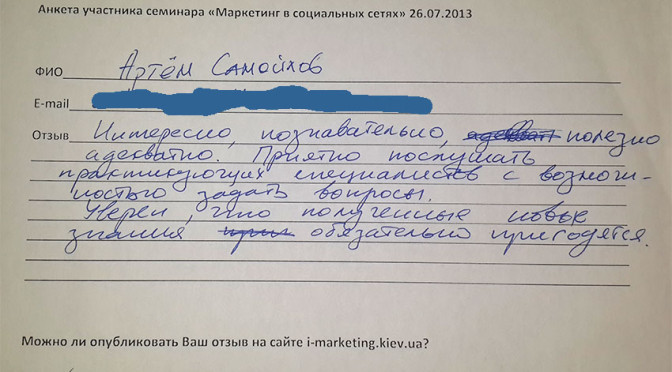 Анкета участника семинара «Маркетинг в социальных сетях» 26.07.2013
ФИО Артём Самойлов
E-mail
Отзыв Интересно, познавательно, полезно
адекватно. Приятно послушать
практикующих специалистов с возмож-
ностью задать вопросы.
Уверен, что полученные новые
знания обязательно пригодятся.
Можно ли опубликовать Ваш отзыв на сайте i-marketing.kiev.ua?